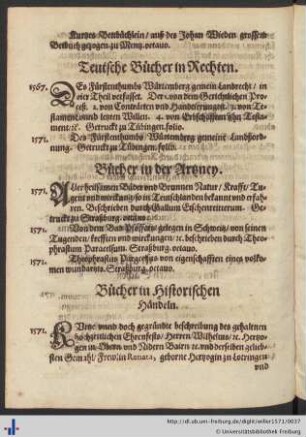 Kurtzes Betbüchlein / auß des Johan Wieden grossem
Betbuch gezogen. zu Mentz. octavo.
Teutsche Bücher in Rechten.
1567. DEs Fürstenthumbs Würtemberg gemein Landrecht / in
vier Theil verfasset. Der 1. von dem Gerichtlichen Pro-
ceß. 2. von Contracten und Handtierungen. 3. von Te-
stament und letzten Willen. 4. von Erbschafften ohn Testa-
ment / ꝛc. Getruckt zu Tübingen. folio.
1571. Des Fürstenthumbs Würtemberg gemeine Landtsord-
nung. Getruckt zu Tübingen. folio.
Bücher in der Artzney.
1571. ALler heilsamen Bäder und Brunnen Natur / Krafft / Tu-
gent und wirckung so in Teutschlanden bekannt und erfah-
ren. Beschrieben durch Gallum Etschenreiterum. Ge-
truckt zu Straßburg. octavo.
1571. Von dem Bad Pfäffers / gelegen in Schweitz / von seinen
Tugenden / kräfften und wirckungen / ꝛc. beschrieben durch Theo-
phrastum Paracelsum. Straßburg. octavo.
1571. Theophrastus Paracelsus von eigenschafften eines volko-
men wundartzts. Straßburg. octavo.
Bücher in Historischen
Händeln.
1571. KUrtze unnd doch gegründte beschreibung des gehaltenen
hochzeitlichen Ehrenfests / Herren Wilhelms / ꝛc. Hertzo-
gen in Obern und Nidern Baiern ꝛc. und derselben gelieb-
sten Gemahl / Frewlin Renata, geborne Hertzogin zu Lotringen /
und
http://dl.ub.uni-freiburg.de/diglit/willer1571/0037
© Universitätsbibliothek Freiburg